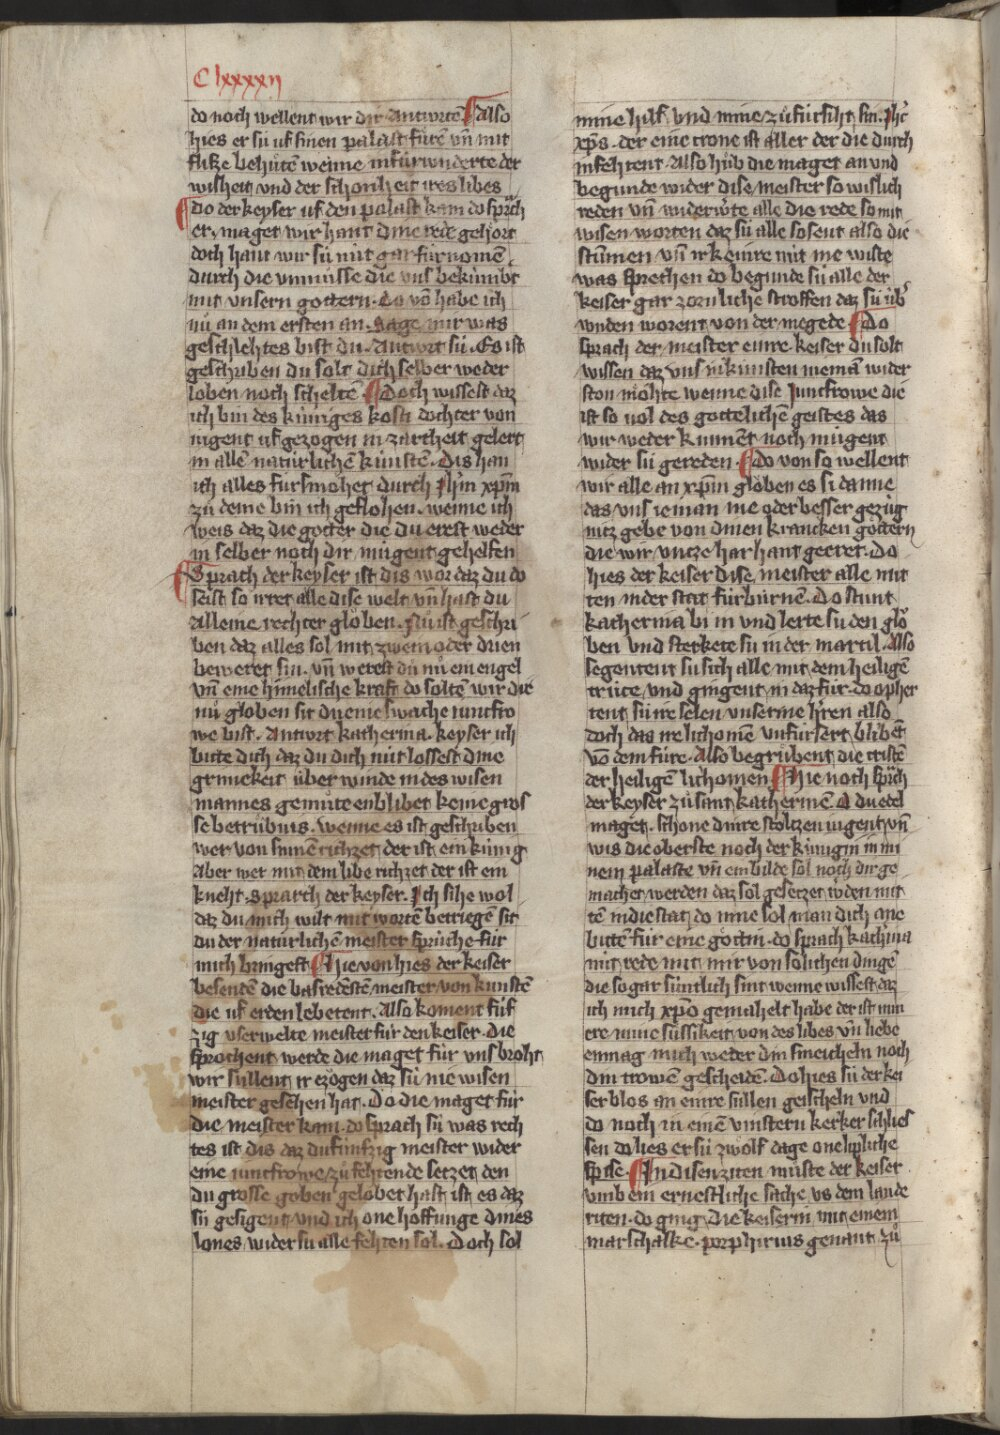 C lxxxxij
do noch wellent wir dir Antwortē Also
hies er sü uf sinen palast fůrē vn̄ mit
flisse behůtē wenne in für wnderte der
wisheit vnd der schonheit ires libes
Do der keyser uf den palast kam do sprͣch
er, maget wir hant dine rede gehort
doch hant wir sü nüt gar fürnomē
durch die vnmůsse die vns bekümbt
mit vnsern gottern. Do vō habe ich
nů an dem ersten an. Sage mir was
geschlehtes bist du. Antwrt sü. Es ist
geschriben du solt dich selber weder
loben noch scheltē. Doch wissest daz
ich bin des küniges kosti dochter von
nigent uf gezogen in zartheit gelert
in allē natürlichē künstē. Dis han
ich alles fürsmohet durch Jhm xpm
zů deme bin ich geflohen. wenne ich
weis daz die gotter die du erest weder
in selber noch dir mügent gehelfen
Sprach der keyser ist dis wor daz du do
seist so irret alle dise welt vn̄ hast du
alleine rechter globen. Nů ist geschri
ben daz alles sol mit zwein oder drien
beweret sin. vn̄ werest du nů ein engel
vn̄ eine himelische kraft do soltē wir die
nů globen sit du eine swache iuncfro
we bist. Antwrt katherina. keyser ich
bitte dich daz du dich nüt lossest dine
grimekeit über winde in des wisen
mannes gemüte enblibet keine gros
se betrübnis. wenne es ist geschriben
wer von sinnē richzet der ist ein künig
Aber wer mit dem libe richzet der ist ein
kneht. Sprarch der keyser. Ich sihe wol
daz du mich wilt mit wortē betriegē sit
du der natürlichē meister sprüche für
mich bringest Hie von hies der keiser
besendē die basredestē meister von künstē
die uf erden lebetent. Also koment füf
zig userwelte meister für den keiser. die
sprochent werde die maget für vns broht
wir süllent ir ezögen daz sü nie wisen
meister gesehen hat. Do die maget für
die meister kam. do sprach sü was rech
tes ist dis daz du fünfzig meister wider
eine iuncfrowe zů fehtende setzet den
du grosse goben gelobet hast ist es daz
sü gesigent vnd ich one hoffunge dines
lones wider su alle fehten sol. Doch sol
mine hilf vnd mine zůfürsiht sin. Jhc
xps. der eine crone ist aller der die durch
in fehtent. Also hůb die maget an vnd
begunde wider dise meister so wislich
reden vn̄ widerwrte alle die rede so mit
wisen worten daz sü alle sosent also die
stummen vn̄ ir keinre nüt me wiste
was sprechen do begunde sü alle der
keiser gar zornliche stroffen daz sü übͬ
wnden worent von der megede Do
sprach der meister einre. keiser du solt
wissen daz vns in künsten niemā wider
ston mohte wenne dise Juncfrowe die
ist so vol des gottelichē geistes das
wir weder kunnēt noch mügent
wider sü gereden. Do von so wellent
wir alle an xpm globen es si danne
das vns ieman me oder besser gezüg
nüz gebe von dinen krancken gottern
die wir vntze har hant geeret. Do
hies der keiser dise meister alle mit
ten in der stat fürbürnē. Do stunt
katherina bi in vnd lerte sü den glo
ben vnd sterkete sü in der martil. Also
segentent sü sich alle mit dem heiligē
crüce vnd gingent in daz für. do opher
tent sü ire selen vnserme hren also
doch das ire lichomē vnfürsert blibēt
vō dem füre. Also begrůbent die cristē
der heiligē lichomen Hie noch sprͣch
der keyser zů sant katherinē. O du edel
maget. schone dinre stoltzen iugent vn̄
wis die oberste noch der künigin in mi
nem palaste vn̄ ein bilde sol noch dir ge
machet werden daz sol gesetzet wden mit
tē in die stat do inne sol man dich ane
bittē für eine gottin. do sprach kathina
nüt rede mit mir von solichen dingē
die so gar süntlich sint wenne wissest daz
ich mich xpo gemahelt habe der ist min
ere mine süssikeit von des libes vn̄ liebe
enmag mich weder din smeicheln noch
din trowē gescheidē. Do hies sü der kei
ser blos an einre sullen geischeln vnd
do noch in einē vinstern kerker schlies
sen do lies er sü zwolf dage one lipliche
spise. In disen ziten můste der keiser
vmb ein ernestliche sache us dem lande
riten. do ging die keiserin mit einem
marschalke. porphirius genant zů